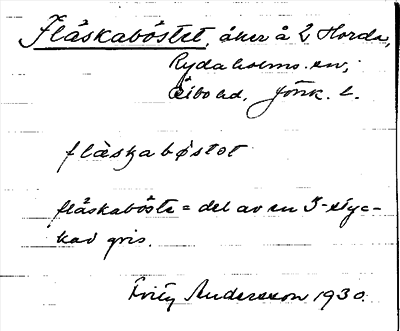 Fläskaböstet, åker å 2 Horda,
Rydaholms sn,
Östbo hd, Jönk. l.
fläskabøstot
fläskaböste = del av en 5-styc-
kad gris.
Fritz Andersson 1930.